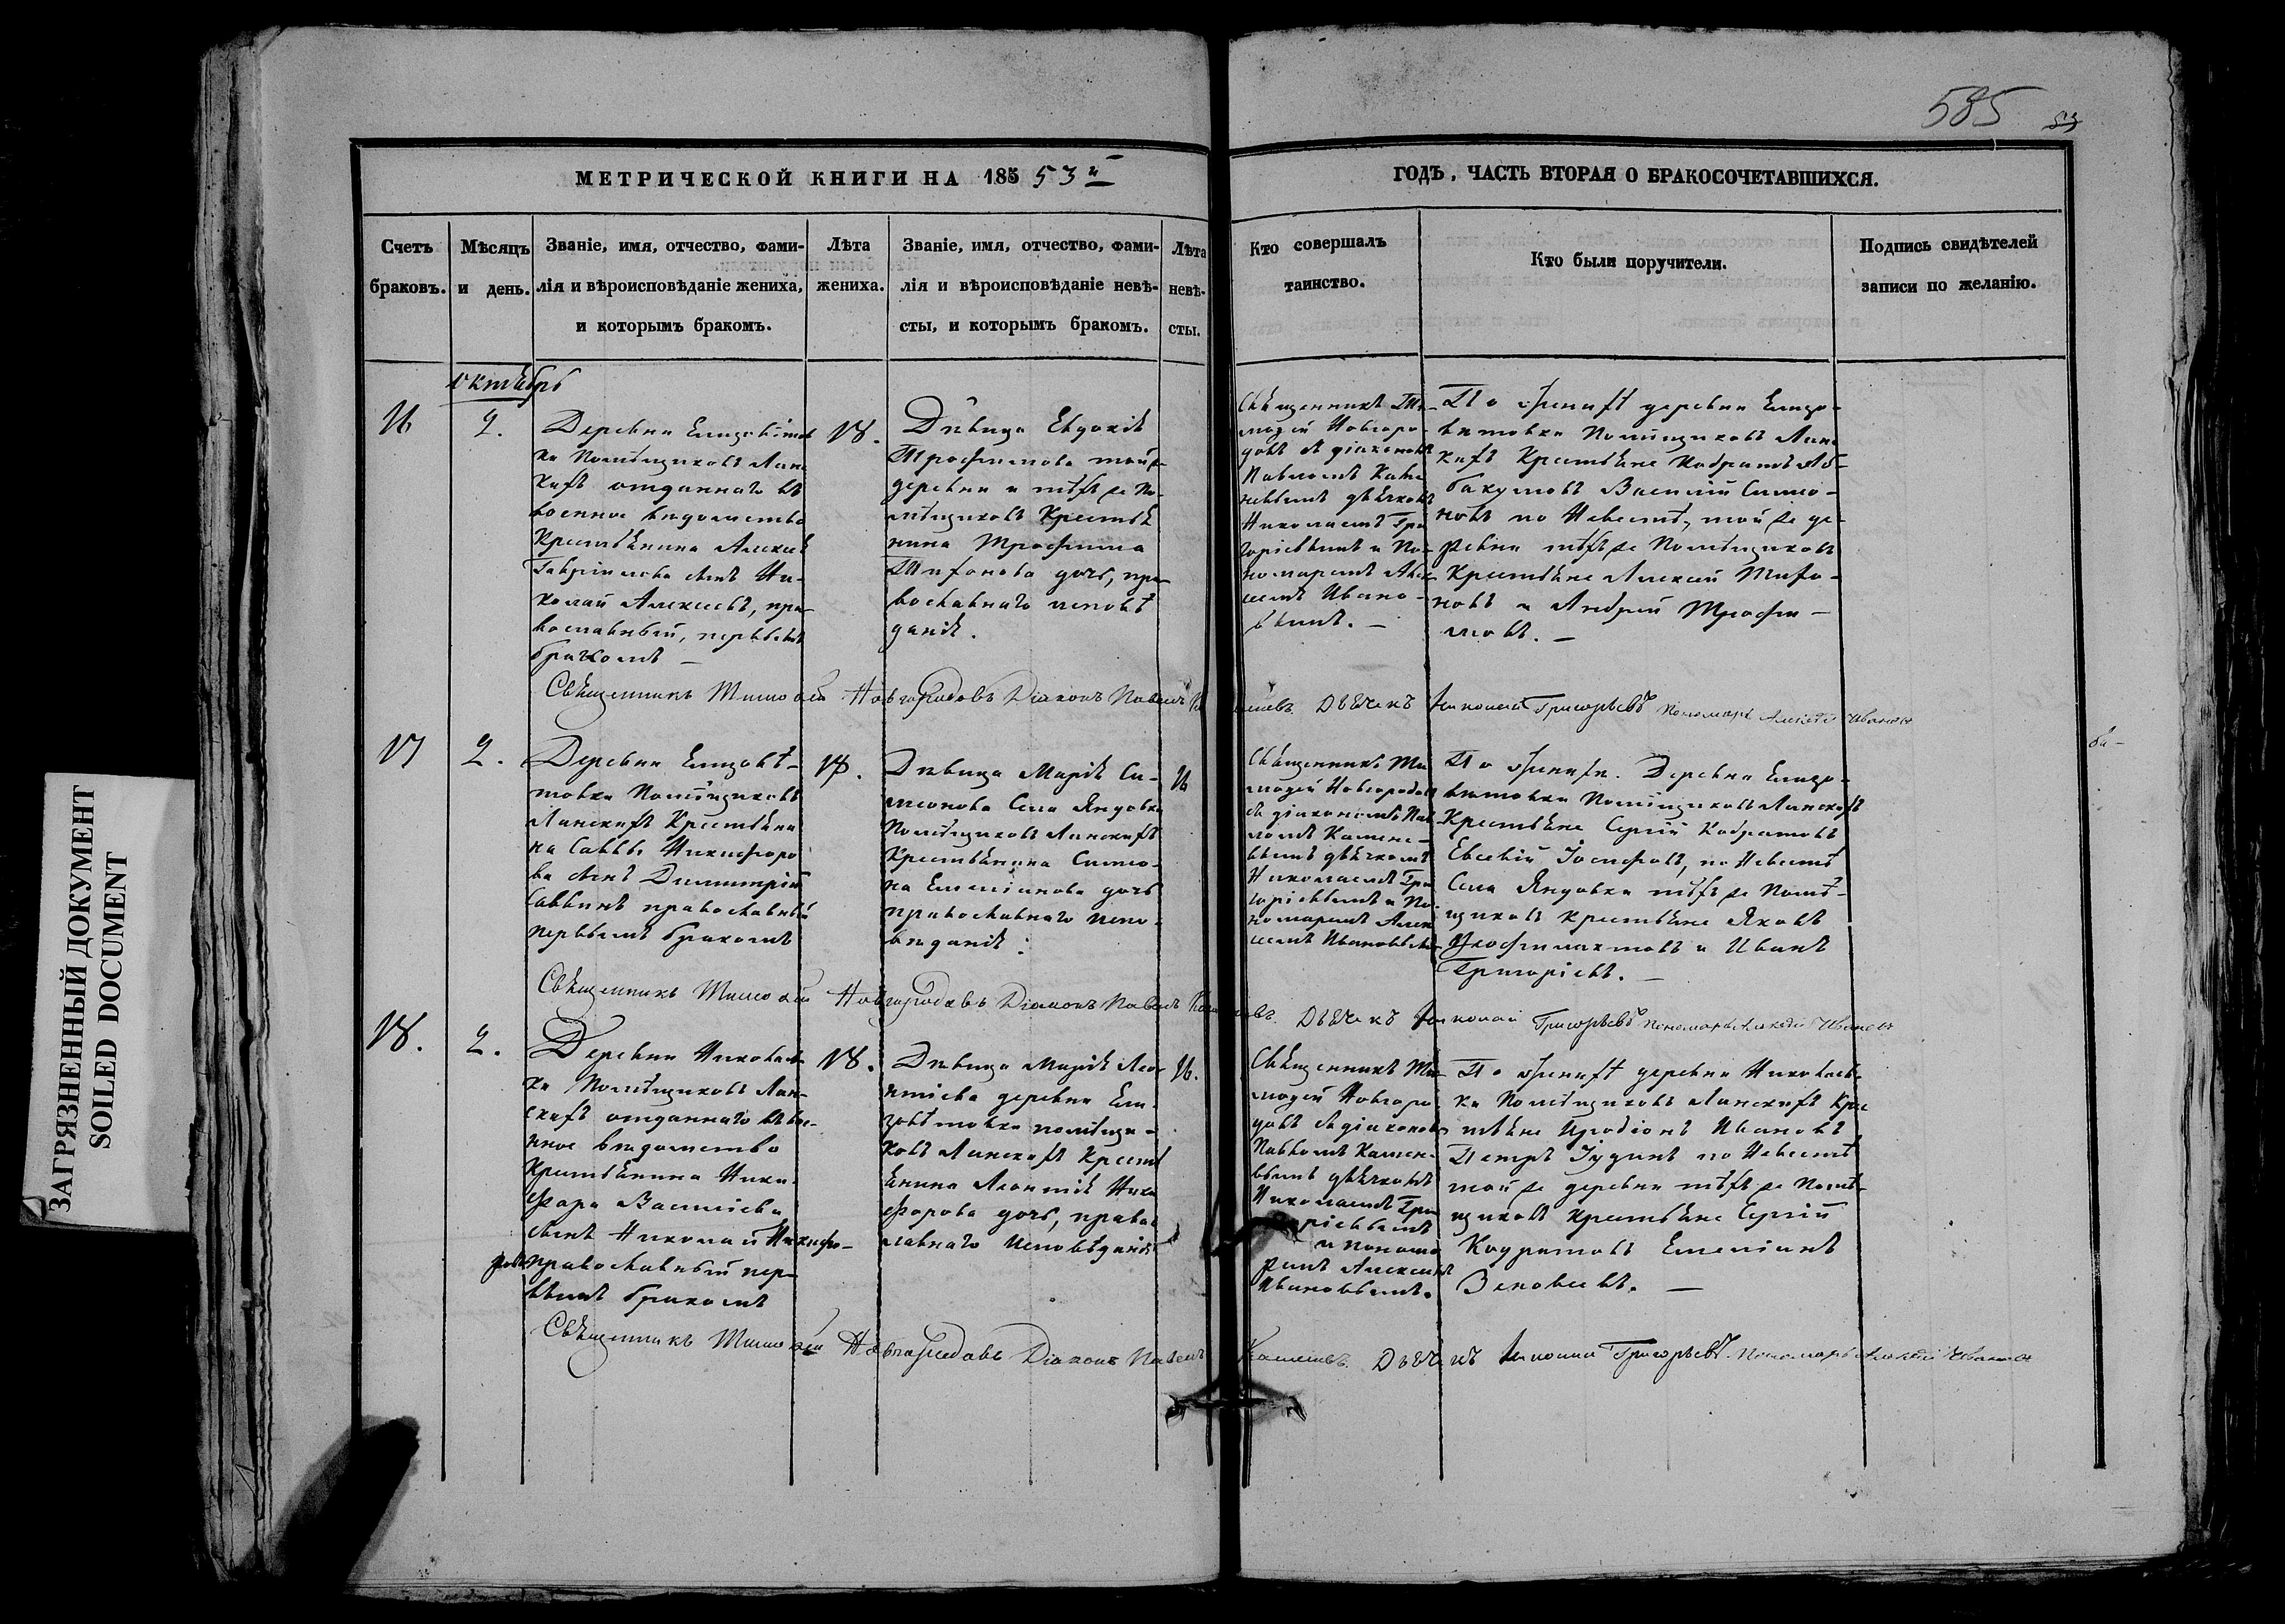 585
МЕТРИЧЕСКОЙ КНИГИ НА 185 53й
ГОДЪ, ЧАСТЬ ВТОРАЯ О БРАКОСОЧЕТАВШИХСЯ.
Счетъ
браковъ.
Мѣсяцъ
и день.
Званіе, имя, отчество, фами-
лія и вѣроисповѣданіе жениха,
и которымъ бракомъ.
Лѣта
жениха.
Званіе, имя, отчество, фами-
лія и вѣроисповѣданіе невѣ-
сты, и которымъ бракомъ.
Лѣта
невѣ-
сты.
Кто совершалъ
таинство.
Кто были поручители.
Подпись свидѣтелей
записи по желанію.
октябрь
16
2.
Деревни Елизавѣтов
ки Помѣщиковъ Лан
кихъ отданнаго въ
военное вѣдомство
Крестьянина Алексѣя
Гавріилова сынъ Ни-
колай Алексѣевъ, пра-
вославный, первымъ
бракомъ
18.
Дѣвица Евдокія
Трофимова той же
деревни и тѣхъ же По-
мѣщиковъ Крестья
нина Трофима
Тихонова дочь, пра-
вославнаго исповѣ
данія.
Священникъ Ти-
моѳей Новгоро-
довъ съ діакономъ
Павломъ Каме
невымъ дьячкомъ
Николаемъ Гри
горіевымъ и По-
номаремъ Алек-
сѣемъ Ивано-
вымъ.
По женихѣ деревни Елиза-
ветовки Помѣщиковъ Лан
кихъ Крестьяне Кодратъ Аб-
бакумовъ Василій Симео-
новъ по Невестѣ, той же де-
ревни тѣхъ же Помѣщиковъ
Крестьяне Алексѣй Тихо-
новъ и Андрей Трофи-
мовъ.
Священникъ Тимоѳей Новгородовъ Діаконъ Павелъ Каменевъ Дьячекъ Николай Григорьевъ Пономарь Алексѣй Ивановъ
17
2.
Деревни Елизавѣ-
товки Помѣщиковъ
Ланскихъ Крестьяни
на Саввы Никифоро
ва сынъ Димитрій
Саввинъ православный
первымъ бракомъ
18.
Дѣвица Марія Си-
меонова Села Яндовки
Помѣщиковъ Ланскихъ
Крестьянина Симео-
на Емеліанова дочь
православнаго испо-
вѣданія
16
Священникъ Ти
моѳей Новгородовъ
съ діакономъ Пав-
ломъ Камене-
вымъ дьячкомъ
Николаемъ Гри
горіевымъ и По-
номаремъ Алек
сѣемъ Ивановымъ
По женихѣ. Деревни Елиза-
ветовки Помѣщиковъ Ланскихъ
Крестьяне Сергій Кодратовъ
Евсевій Іосифовъ, по Невестѣ
Села Яндовки тѣхъ же Помѣ-
щиковъ крестьяне Яковъ
Ѳеофилактовъ и Иванъ
Григоріевъ.
Священникъ Тимоѳей Новгородовъ Діаконъ Павелъ Каменевъ Дьячекъ Николай Григорьевъ Пономарь Алексѣй Ивановъ
18.
2.
Деревни Николаев
ки Помѣщиковъ Лан-
скихъ отданнаго въ вое-
нное вѣдомство
Крестьянина Ники-
фора Василіева
сынъ Николай Никифо-
ровъ православный пер-
вымъ бракомъ
18.
Дѣвица Марія Лео-
нтіева деревни Ели-
завѣтовки помѣщи-
ковъ Ланскихъ Кресть
янина Леонтія Ники
форова дочь, право
славнаго Исповѣданія
16.
Священникъ Ти-
моѳей Новгоро
довъ съ діакономъ
Павломъ Камен-
вымъ дьячкомъ
Николаемъ Гри
горіевымъ
и понома
ремъ Алексѣемъ
Ивановымъ.
По женихѣ деревни Николаев-
ки Помѣщиковъ Ланскихъ Кре
стьяне Иродіонъ Ивановъ
Петръ Іудинъ по Невестѣ
той же деревни тѣхъ же Помѣ-
щиковъ Крестьяне Сергій
Кодратовъ Емеліанъ
Зиновьевъ.
Священникъ Тимоѳей Новгородовъ Діаконъ Павелъ Каменевъ Дьячекъ Николай Григорьевъ Пономарь Алексѣй Ивановъ
ЗАГРЯЗНЕННЫЙ ДОКУМЕНТ
SOILED DOCUMENT